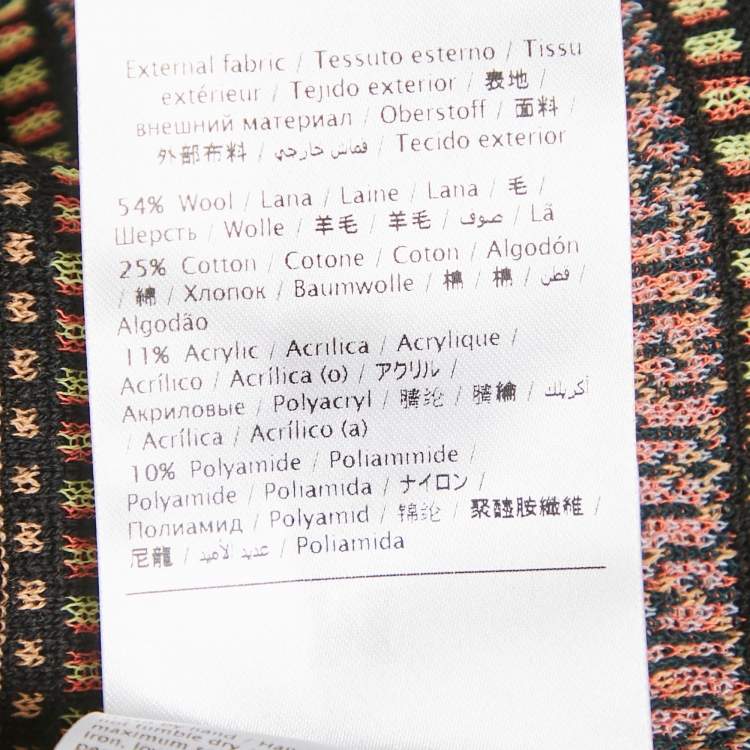 External fabric / Tessuto esterno / Tissu
extérieur / Tejido exterior / 表地 /
внешний материал / Oberstoff / 面料 /
外部布料 / قماش خارجي / Tecido exterior
54% Wool / Lana / Laine / Lana / 毛 /
Шерсть / Wolle / 羊毛 / 羊毛 / صوف / Lã
25% Cotton / Cotone / Coton / Algodón
/ 綿 / Хлопок / Baumwolle / 棉 / 棉 / قطن /
Algodão
11% Acrylic / Acrilica / Acrylique /
Acrílico / Acrílica (o) / アクリル /
Акриловые / Polyacryl / 腈纶 / 腈綸 / أكريلك
/ Acrílica / Acrílico (a)
10% Polyamide / Poliammide /
Polyamide / Poliamida / ナイロン /
Полиамид / Polyamid / 锦纶 / 聚醯胺纖維 /
尼龍 / عديد الأميد / Poliamida
not tumble dry
maximum
iron, lo